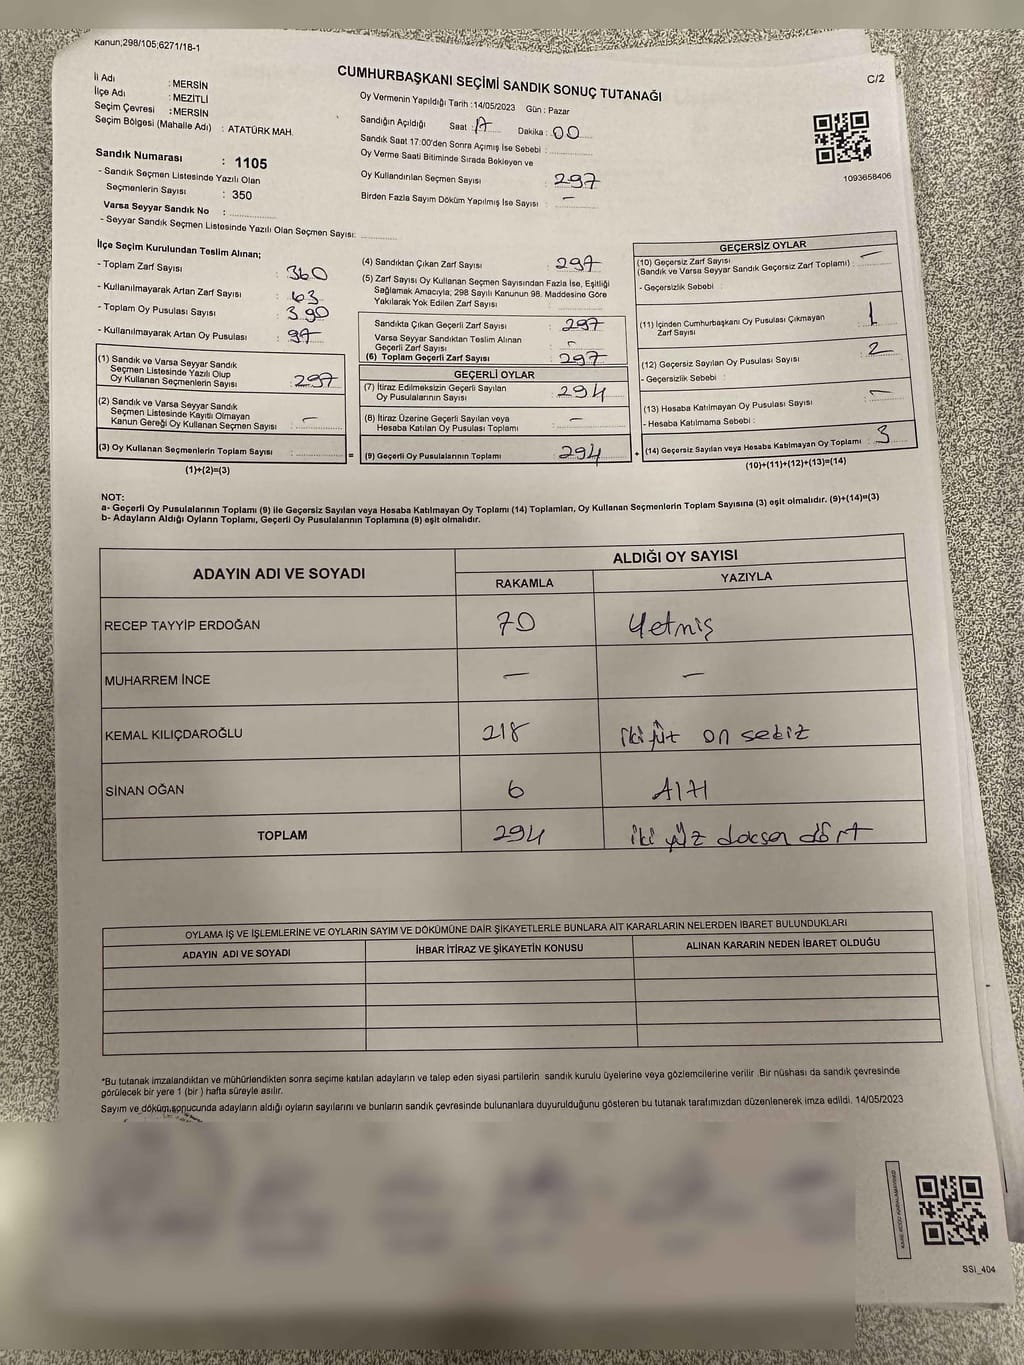 Kanun;298/105;6271/18-1
CUMHURBAŞKANI SEÇİMİ SANDIK SONUÇ TUTANAĞI
C/2
İl Adı : MERSİN
İlçe Adı : MEZİTLİ
Seçim Çevresi : MERSİN
Seçim Bölgesi (Mahalle Adı) : ATATÜRK MAH.
Sandık Numarası : 1105
- Sandık Seçmen Listesinde Yazılı Olan
Seçmenlerin Sayısı : 350
Varsa Seyyar Sandık No : ............
- Seyyar Sandık Seçmen Listesinde Yazılı Olan Seçmen Sayısı: ............
Oy Vermenin Yapıldığı Tarih :14/05/2023 Gün : Pazar
Sandığın Açıldığı Saat : 17 Dakika : 00
Sandık Saat 17:00'den Sonra Açımış İse Sebebi : ............
Oy Verme Saati Bitiminde Sırada Bekleyen ve
Oy Kullandırılan Seçmen Sayısı : 297
Birden Fazla Sayım Döküm Yapılmış İse Sayısı : –
1093658406
İlçe Seçim Kurulundan Teslim Alınan;
- Toplam Zarf Sayısı : 360
- Kullanılmayarak Artan Zarf Sayısı : 63
- Toplam Oy Pusulası Sayısı : 390
- Kullanılmayarak Artan Oy Pusulası : 97
(1) Sandık ve Varsa Seyyar Sandık
Seçmen Listesinde Yazılı Olup
Oy Kullanan Seçmenlerin Sayısı : 297
(2) Sandık ve Varsa Seyyar Sandık
Seçmen Listesinde Kayıtlı Olmayan
Kanun Gereği Oy Kullanan Seçmen Sayısı : –
(3) Oy Kullanan Seçmenlerin Toplam Sayısı : ............ =
(1)+(2)=(3)
(4) Sandıktan Çıkan Zarf Sayısı : 297
(5) Zarf Sayısı Oy Kullanan Seçmen Sayısından Fazla İse, Eşitliği
Sağlamak Amacıyla; 298 Sayılı Kanunun 98. Maddesine Göre
Yakılarak Yok Edilen Zarf Sayısı : ............
Sandıkta Çıkan Geçerli Zarf Sayısı : 297
Varsa Seyyar Sandıktan Teslim Alınan
Geçerli Zarf Sayısı : –
(6) Toplam Geçerli Zarf Sayısı : 297
GEÇERLİ OYLAR
(7) İtiraz Edilmeksizin Geçerli Sayılan
Oy Pusulalarının Sayısı : 294
(8) İtiraz Üzerine Geçerli Sayılan veya
Hesaba Katılan Oy Pusulası Toplamı : –
(9) Geçerli Oy Pusulalarının Toplamı : 294 +
GEÇERSİZ OYLAR
(10) Geçersiz Zarf Sayısı
(Sandık ve Varsa Seyyar Sandık Geçersiz Zarf Toplamı) : –
- Geçersizlik Sebebi :
(11) İçinden Cumhurbaşkanı Oy Pusulası Çıkmayan
Zarf Sayısı : 1
(12) Geçersiz Sayılan Oy Pusulası Sayısı : 2
- Geçersizlik Sebebi :
(13) Hesaba Katılmayan Oy Pusulası Sayısı : –
- Hesaba Katılmama Sebebi :
(14) Geçersiz Sayılan veya Hesaba Katılmayan Oy Toplamı : 3
(10)+(11)+(12)+(13)=(14)
NOT:
a- Geçerli Oy Pusulalarının Toplamı (9) ile Geçersiz Sayılan veya Hesaba Katılmayan Oy Toplamı (14) Toplamları, Oy Kullanan Seçmenlerin Toplam Sayısına (3) eşit olmalıdır. (9)+(14)=(3)
b- Adayların Aldığı Oyların Toplamı, Geçerli Oy Pusulalarının Toplamına (9) eşit olmalıdır.
ADAYIN ADI VE SOYADI
ALDIĞI OY SAYISI
RAKAMLA YAZIYLA
RECEP TAYYİP ERDOĞAN 70 Yetmiş
MUHARREM İNCE – –
KEMAL KILIÇDAROĞLU 218 iki yüz on sekiz
SİNAN OĞAN 6 Altı
TOPLAM 294 iki yüz docsan dört
OYLAMA İŞ VE İŞLEMLERİNE VE OYLARIN SAYIM VE DÖKÜMÜNE DAİR ŞİKAYETLERLE BUNLARA AİT KARARLARIN NELERDEN İBARET BULUNDUKLARI
ADAYIN ADI VE SOYADI İHBAR İTİRAZ VE ŞİKAYETİN KONUSU ALINAN KARARIN NEDEN İBARET OLDUĞU
*Bu tutanak imzalandıktan ve mühürlendikten sonra seçime katılan adayların ve talep eden siyasi partilerin sandık kurulu üyelerine veya gözlemcilerine verilir .Bir nüshası da sandık çevresinde
görülecek bir yere 1 (bir ) hafta süreyle asılır.
Sayım ve döküm sonucunda adayların aldığı oyların sayılarını ve bunların sandık çevresinde bulunanlara duyurulduğunu gösteren bu tutanak tarafımızdan düzenlenerek imza edildi. 14/05/2023
SSI_404